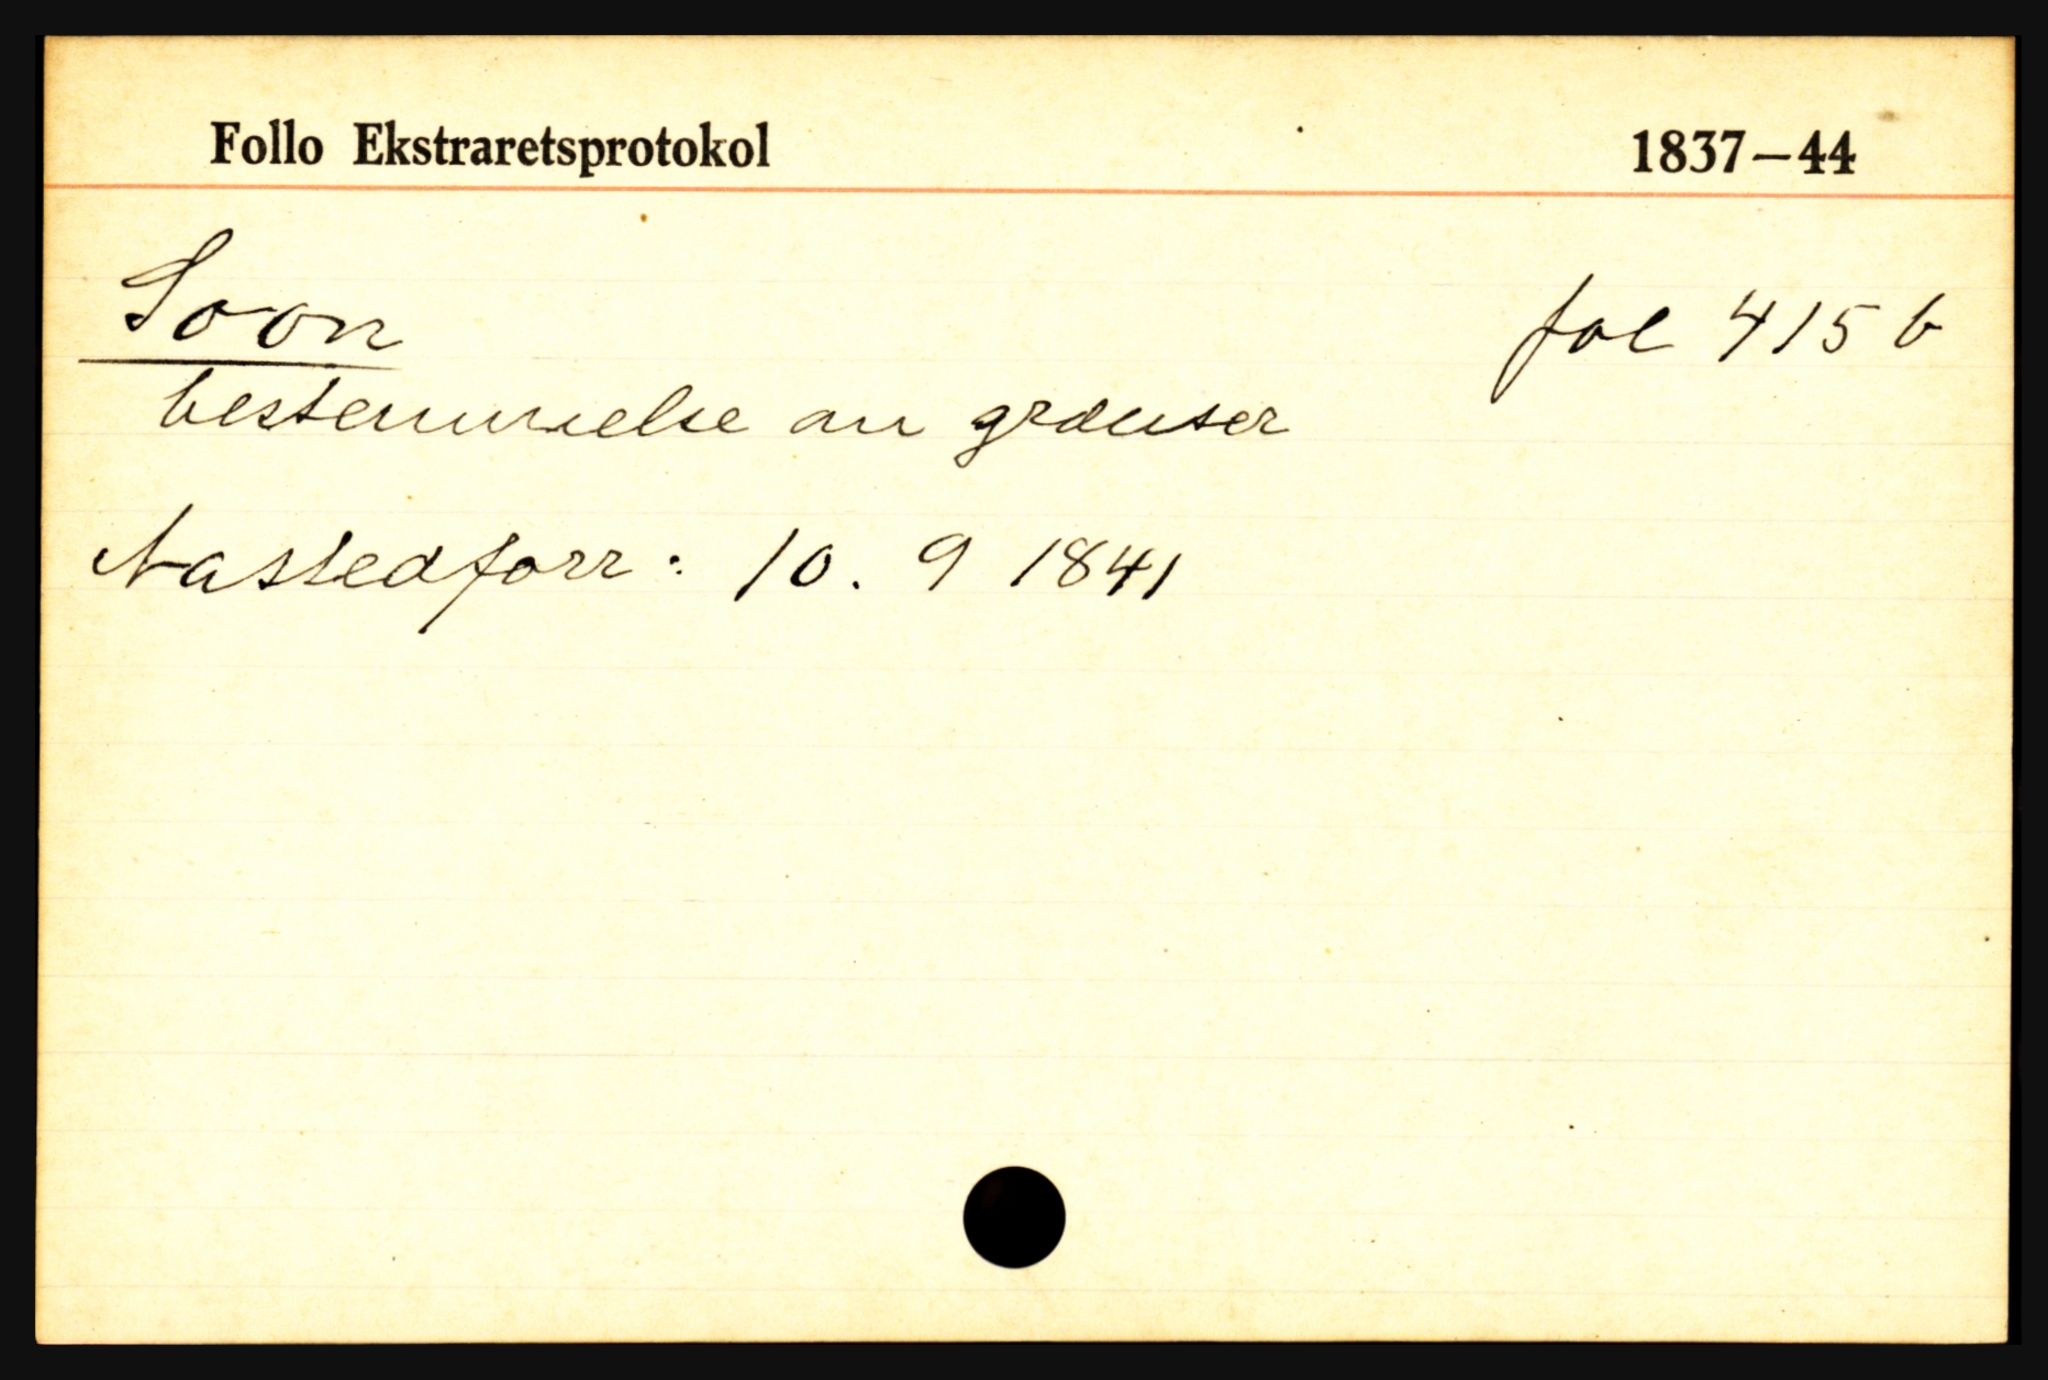 Follo Ekstraretsprotokol 1837–44
Soon fol 415 b
bestemmelse om grænser
Aastedforr: 10. 9 1841